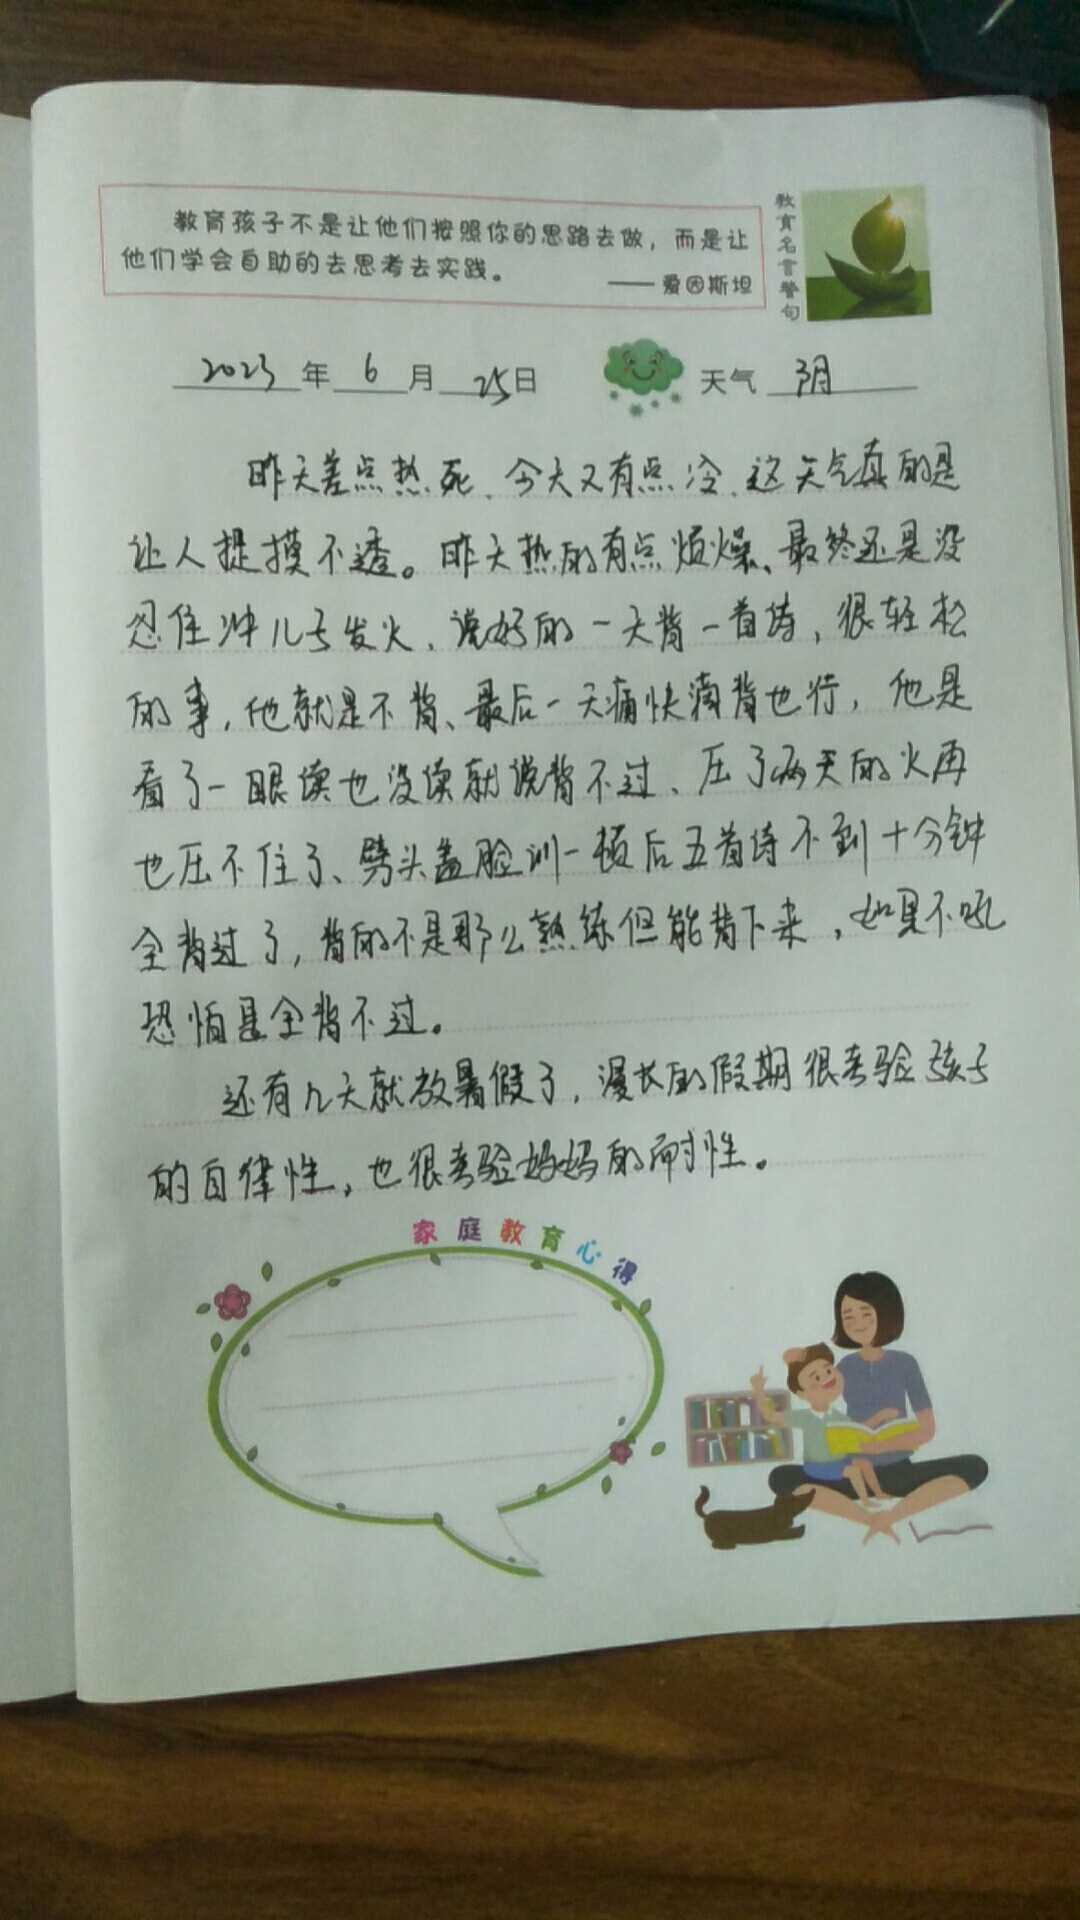 教育孩子不是让他们按照你的思路去做，而是让
他们学会自助的去思考去实践。
——爱因斯坦
教育名言警句
2023年6月25日 天气 阴
昨天差点热死、今天又有点冷、这天气真的是
让人捉摸不透。昨天热的有点烦燥、最终还是没
忍住冲儿子发火、说好的一天背一首诗，很轻松
的事，他就是不背、最后一天痛快滴背也行，他是
看了一眼读也没读就说背不过、压了两天的火再
也压不住了、劈头盖脸训一顿后五首诗不到十分钟
全背过了，背的不是那么熟练但能背下来，如果不吼
恐怕是全背不过。
还有几天就放暑假了，漫长的假期很考验孩子
的自律性，也很考验妈妈的耐性。
家庭教育心得